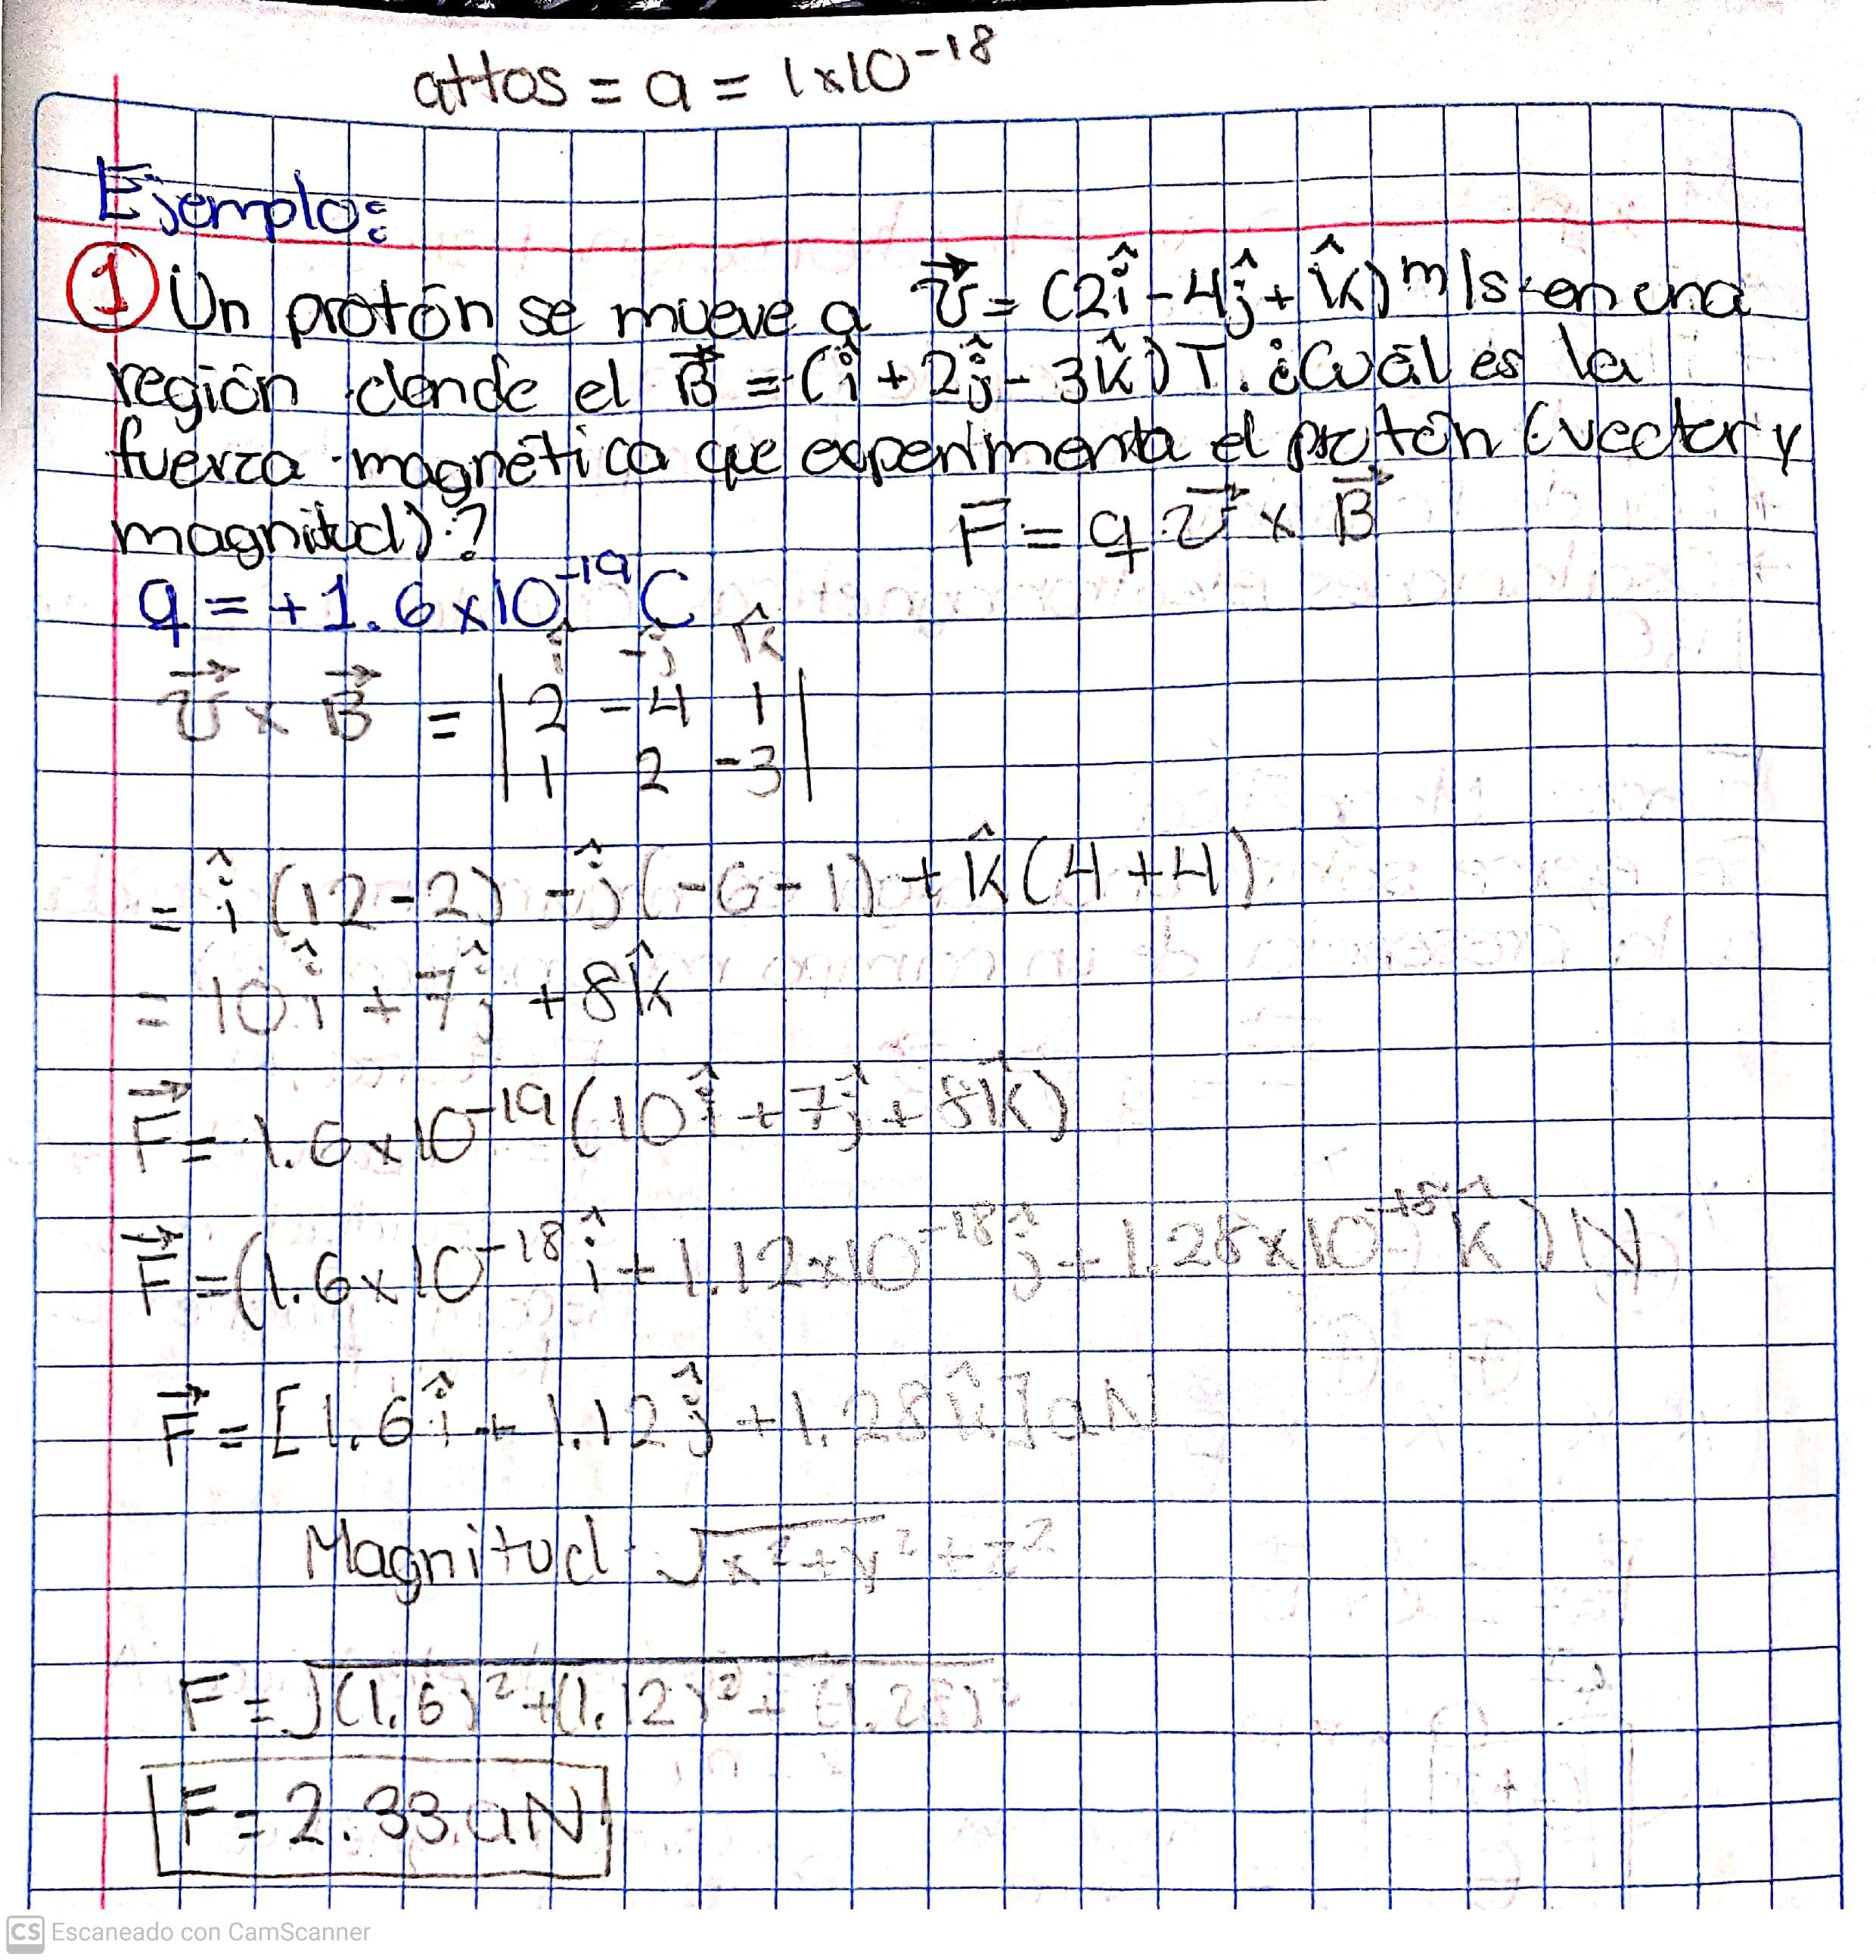 attos = a = 1x10⁻¹⁸
Ejemplo:
① Un protón se mueve a v⃗ = (2î - 4ĵ + k̂) m/s en una
región donde el B⃗ = (î + 2ĵ - 3k̂) T. ¿Cuál es la
fuerza magnética que experimenta el protón (vector y
magnitud)?
F = q v⃗ x B⃗
q = +1.6x10⁻¹⁹ C
î -ĵ k̂
v⃗ x B⃗ = | 2 -4 1 |
| 1 2 -3 |
= î (12-2) -ĵ (-6-1) + k̂ (4+4)
= 10î + 7ĵ + 8k̂
F⃗ = 1.6x10⁻¹⁹ (10î + 7ĵ + 8k̂)
F⃗ = (1.6x10⁻¹⁸ î + 1.12x10⁻¹⁸ ĵ + 1.28x10⁻¹⁸ k̂) N
F⃗ = [1.6î + 1.12ĵ + 1.28k̂] aN
Magnitud √x²+y²+z²
F = √(1.6)²+(1.12)²+(1.28)²
F = 2.33 aN
CS Escaneado con CamScanner